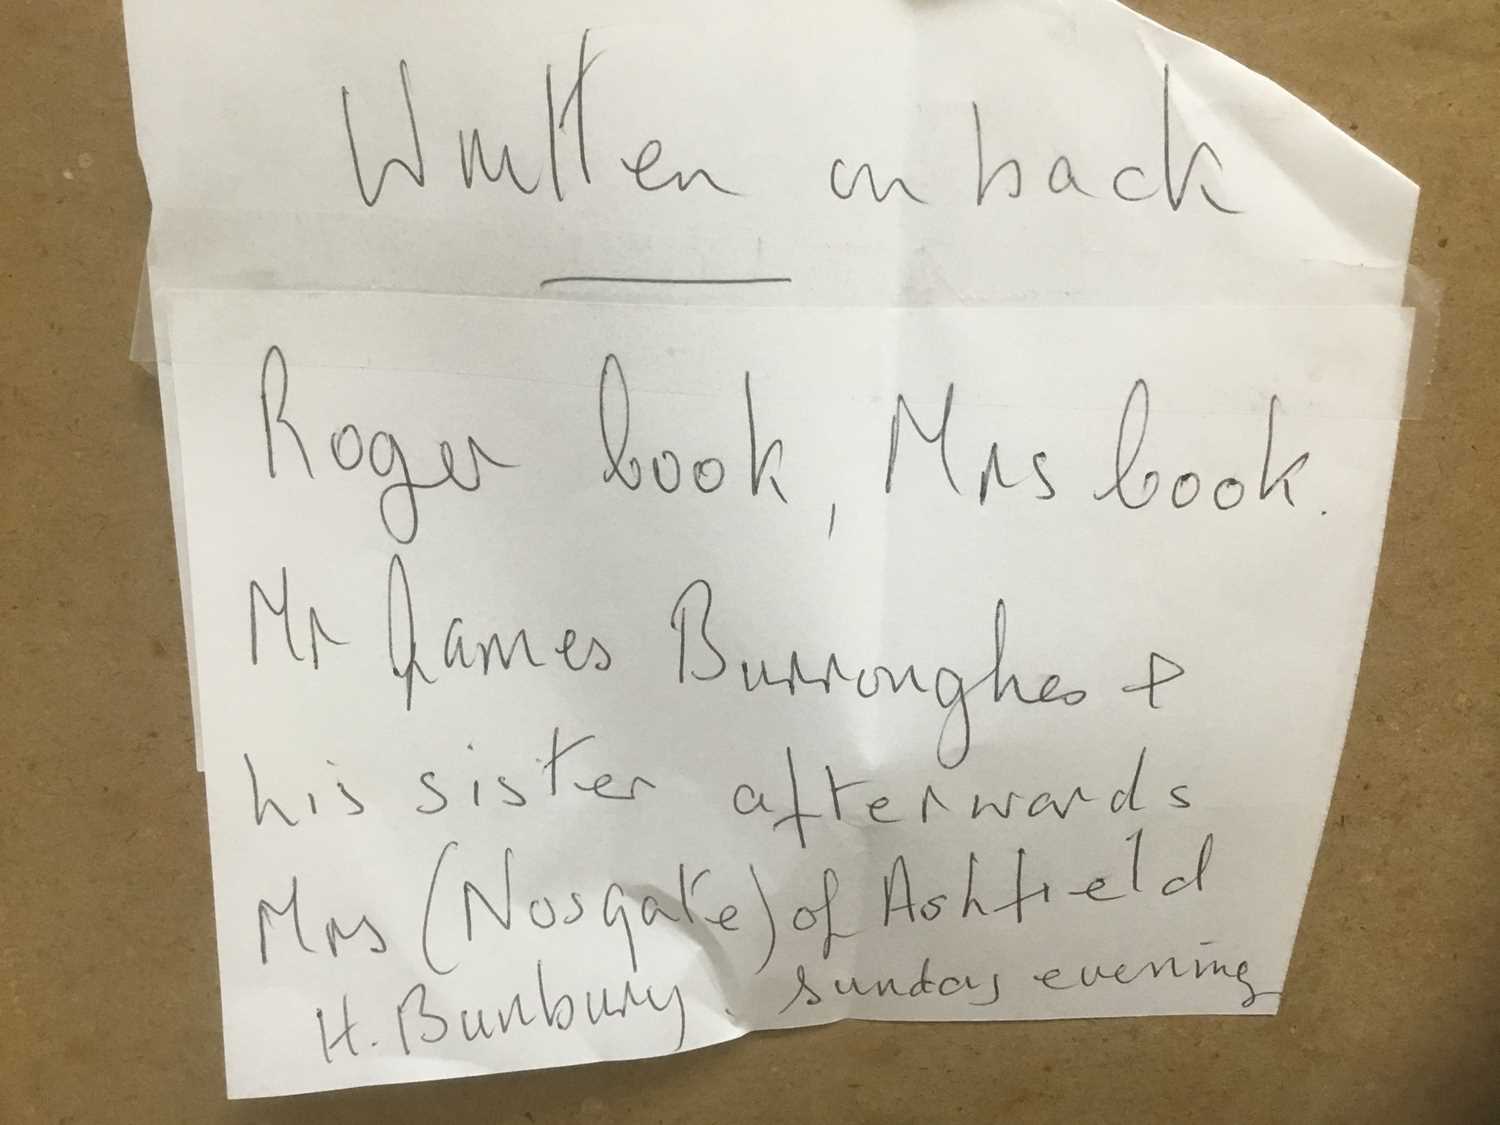 Written on back
Roger book, Mrs book.
Mr James Burroughes +
his sister afterwards
Mrs (Nosgate) of Ashfield
H. Bunbury. sunday evening